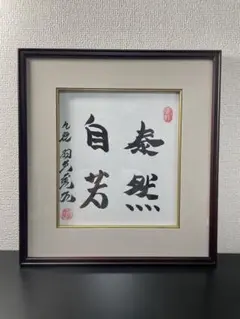 泰然
自若
九段 羽生善治